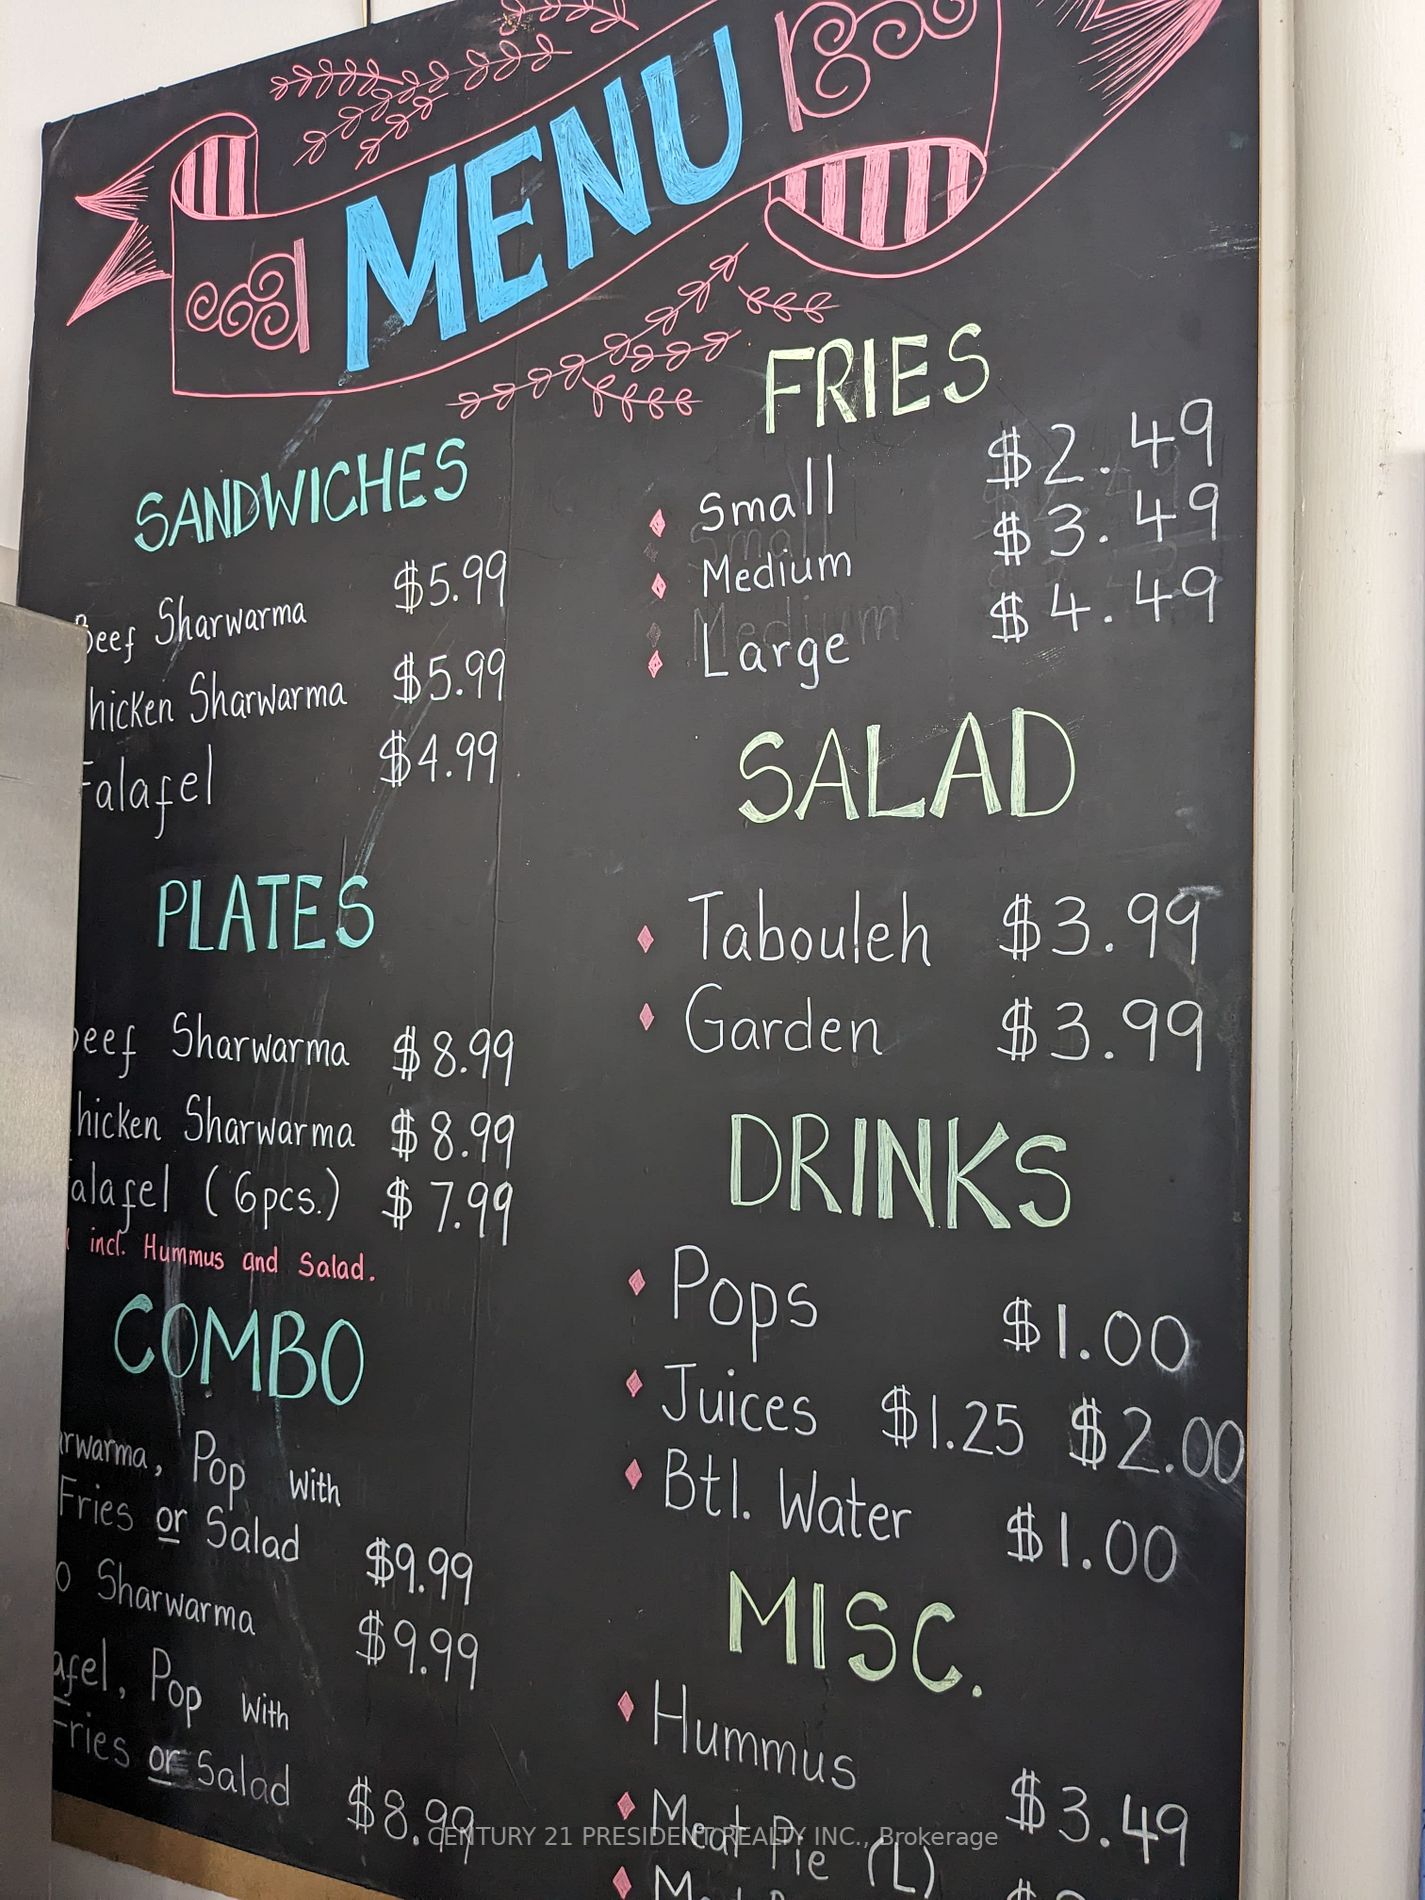 MENU
SANDWICHES
Beef Sharwarma $5.99
hicken Sharwarma $5.99
Falafel $4.99
PLATES
Beef Sharwarma $8.99
hicken Sharwarma $8.99
alafel (6pcs.) $7.99
incl. Hummus and Salad.
COMBO
arwarma, Pop with
Fries or Salad $9.99
o Sharwarma $9.99
afel, Pop with
Fries or Salad $8.99
FRIES
Small $2.49
Medium $3.49
Large $4.49
SALAD
Tabouleh $3.99
Garden $3.99
DRINKS
Pops $1.00
Juices $1.25 $2.00
Btl. Water $1.00
MISC.
Hummus $3.49
Meat Pie (L)
CENTURY 21 PRESIDENT REALTY INC., Brokerage